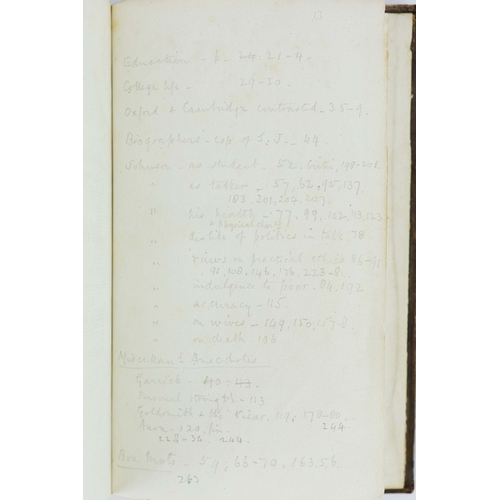 Education - p. 24. 21-4.
College life - 29-30.
Oxford & Cambridge contrasted - 35-9.
Biographers - esp of S. J. - 49.
Johnson - as student - 52. 198-201.
" as talker - 57, 62, 95, 137
183, 201, 204, 207.
" his health - 77. 99, 102, 113, 123
" dislike of politics in talk 78.
" views on practical ethics 86-95
98, 108, 146, 176, 223-8.
" indulgence to poor. 84, 192
" accuracy - 115
" on wives - 149, 150, 157-8.
" on death. 196
Miscellan's Anecdotes
Garrick - 40. 43.
Personal strength - 113
Goldsmith & the 119, 178-80.
120 fin. 244
228-36 244.
Bon Mots - 59, 66-70. 163, 56.
267